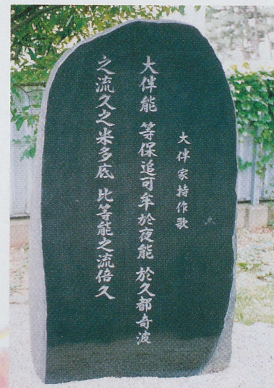 大伴家持作歌
大伴能 等保追可牟於夜能 於久都奇波
之流久之米多底 比等能之流倍久